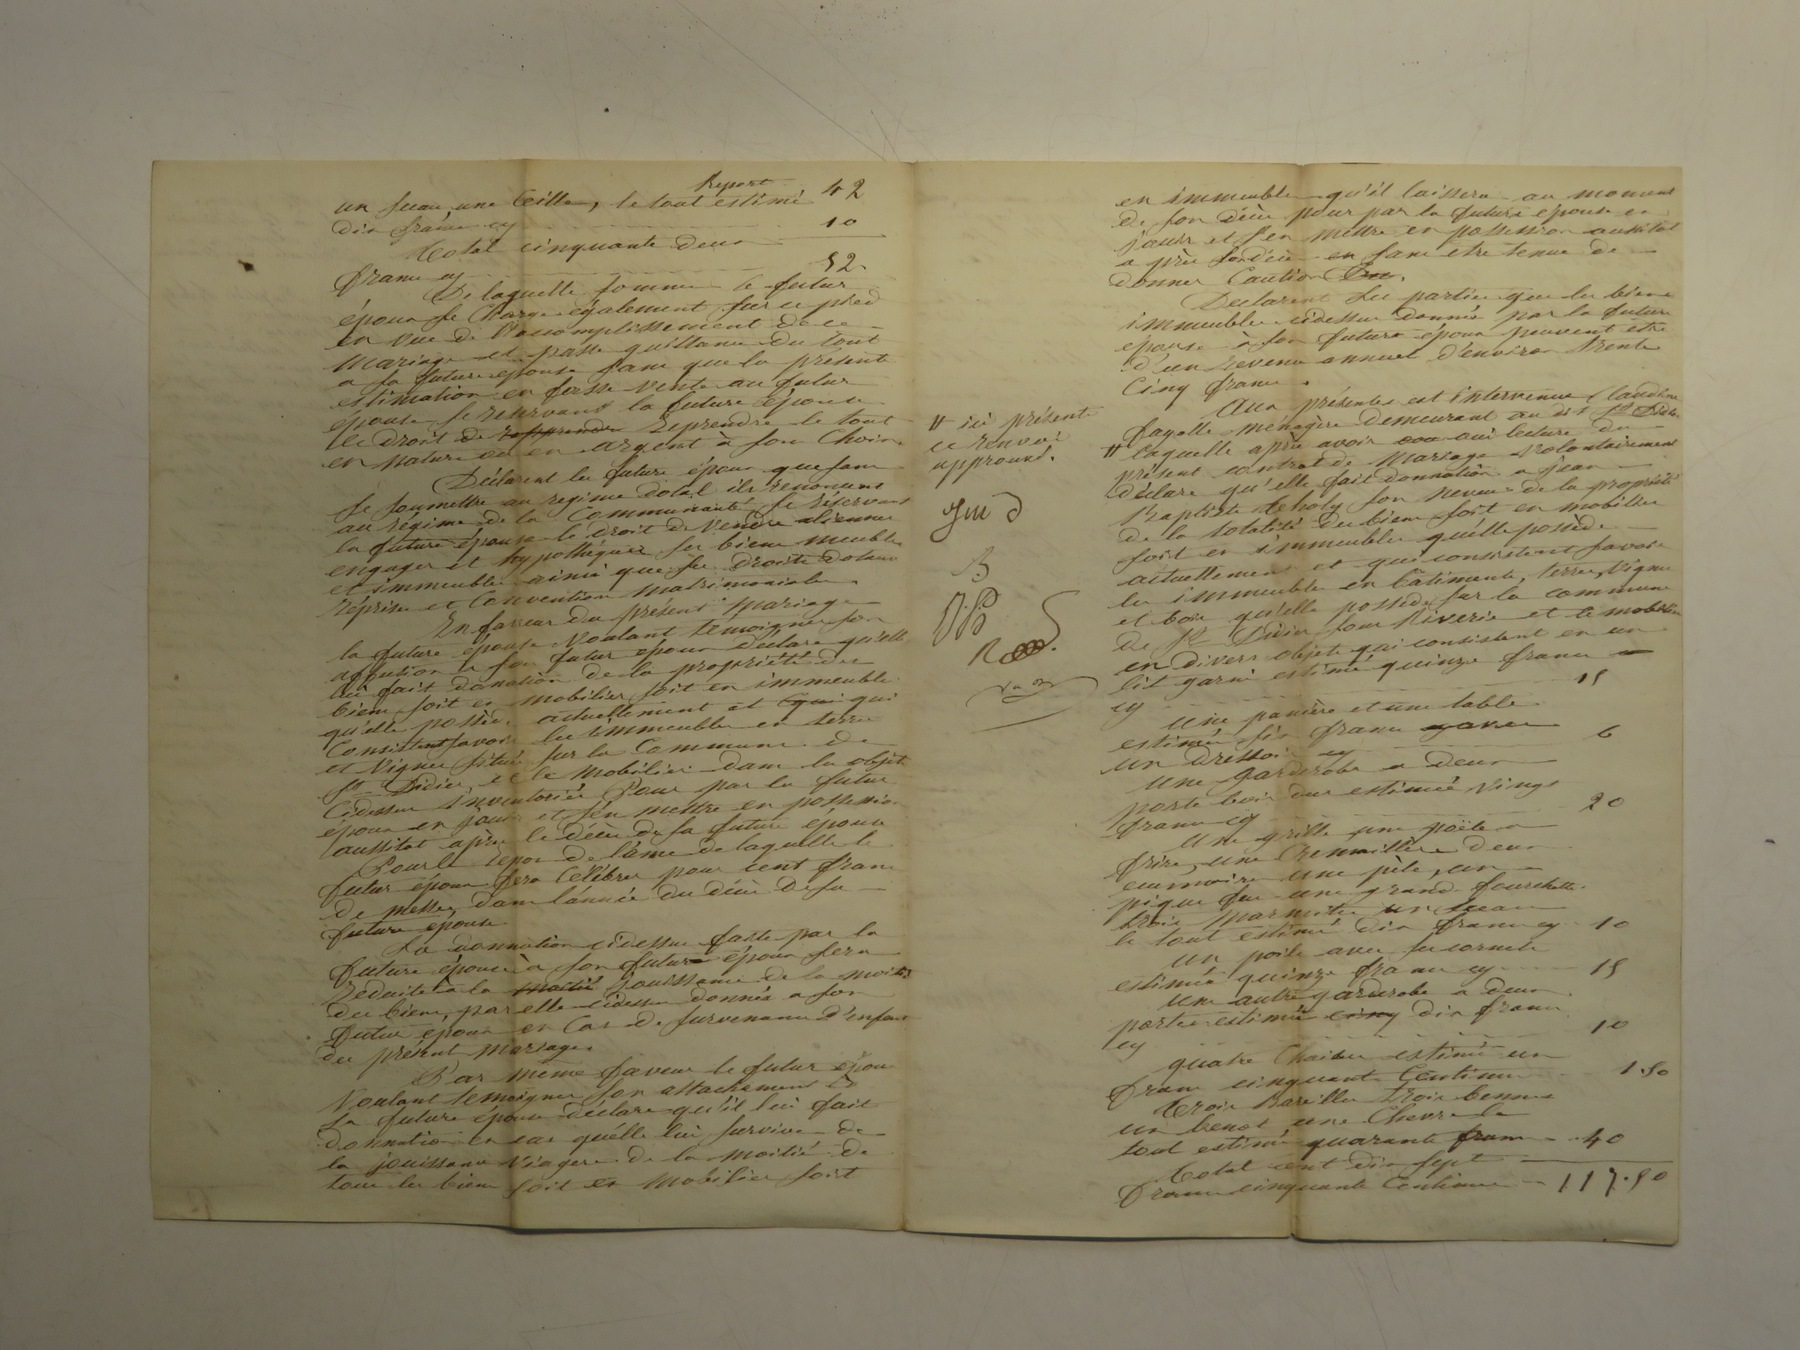 Report 42
un seau une Ceille, le tout estimé
dix francs cy 10
Total cinquante deux
francs cy 52
De laquelle somme le futur
époux se charge également sur ce pied
en vue de l'accomplissement de ce
mariage et passe quittance du tout
a la future épouse sans que la présente
estimation en fasse vente au futur
époux se réservant la future épouse
le droit de reprendre le tout
en nature ou en argent à son choix
Déclarent les futurs époux que sans
se soumettre au regime dotal ils renoncent
au régime de la Communauté, se réservant
la future épouse le droit de Vendre aliener
engager et hypothéquer ses biens meubles
et immeubles ainsi que ses droits dotaux
reprises et Convention matrimoniales.
En faveur du présent mariage
la future épouse Voulant temoigner son
affection à son futur époux déclare qu'elle
lui fait donation de la propriété des
biens soit en mobilier soit en immeubles
qu'elle possède actuellement et qui
Consistent savoir les immeubles en terres
et Vignes situés sur la Commune de
St Didier et le mobilier dans les objets
Cidessus inventoriés Pour par le futur
époux en jouir et s'en mettre en possession
aussitot après le décès de sa future épouse
Pour le repos de l'âme de laquelle le
futur époux fera Célébrer pour cent francs
de messes dans l'année du décès de sa
future épouse
La donnation cidessus faite par la
future épouse à son futur époux sera
Réduite à la jouissance de la moitié
des biens, par elle cidessus donnés a son
futur époux en Cas de survenance d'enfant
du présent mariage.
Par même faveur le futur époux
Voulant temoigner son attachement à
La future épouse déclare qu'il lui fait
donnation en cas qu'elle lui survive de
la jouissance Viagere de la moitié de
tous les biens soit en mobilier soit
# ici présente
ce renvoi
approuvé.
en immeubles qu'il laissera au moment
de son décès pour par la future épouse en
jouir et s'en mettre en possession aussitot
après son décès en sans etre tenue de
donner Caution
Déclarent les parties que les biens
immeubles cidessus donnés par la future
épouse à son futur époux peuvent etre
d'un revenu annuel d'environ trente
Cinq francs.
Aux présentes est intervenue Claudine
Fayolle ménagère demeurant au dit St Didier
# laquelle après avoir oui lecture du
présent contrat de mariage Volontairement
déclare qu'elle fait donnation a jean
Baptiste Choly son neveu de la propriété
de la totalité des biens soit en mobilier
soit en immeubles qu'elle possède
actuellement et qui consistent savoir
les immeubles en batiments, terres, Vignes
et bois qu'elle possède sur la commune
de St Didier sous Riverie et le mobilier
en divers objets qui consistent en un
lit garni estimé quinze francs
cy 15
Une panière et une table
estimés six francs avec
un dressoir cy 6
Une garderobe a deux
portes bois dur estimée Vingt
francs cy 20
Une grille une poële a
frire, une Cremaillère deux
une pèle, un
pique feu une grand fourchette
trois marmites un seau
le tout estimé dix francs cy 10
Un poile avec ses cornets
estimé quinze francs cy 15
Une autre garderobe a deux
portes estimée dix francs
cy 10
quatre Chaises estimé un
franc cinquante Centimes 1.50
Trois Bareilles trois bennes
un benot une Chevre le
tout estimé quarante francs 40
Total cent dix sept
francs cinquante Centimes 117.50